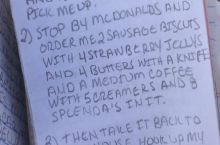 PICK ME UP.
2) STOP BY MCDONALDS AND
ORDER ME 2 SAUSAGE BISCUITS
WITH 4 STRAWBERRY JELLYS
AND 4 BUTTERS WITH A KNIFE
AND A MEDIUM COFFEE
WITH 5 CREAMERS AND 8
SPLENDA'S IN IT.
THEN TAKE IT BACK TO
HOOK UP MY